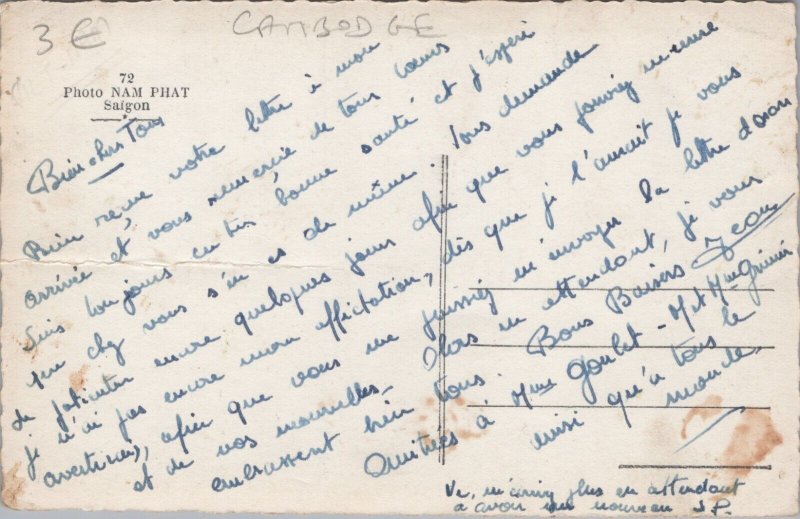 3 €
CAMBODGE
72
Photo NAM PHAT
Saïgon
Bien chers Tous
Bien reçue votre lettre à mon
arrivée et vous remercie de tous cœurs
suis toujours en très bonne santé et j'espère
que chez vous s'en es de même. Vous demande
de patienter encore quelques jours afin que vous
je n'ai pas encore mon affectation, dès que je l'aurait je vous
avertirez, afin que vous me puissiez m'envoyer la lettre
et de vos nouvelles. Alors en attendant, je vous
embrassent bien tous. Bons Baisers Jean
Amitiés à Mme Goulet - M et Mme
ainsi qu'a tous le
monde.
plus en attendant
a avoir un nouveau S.P.